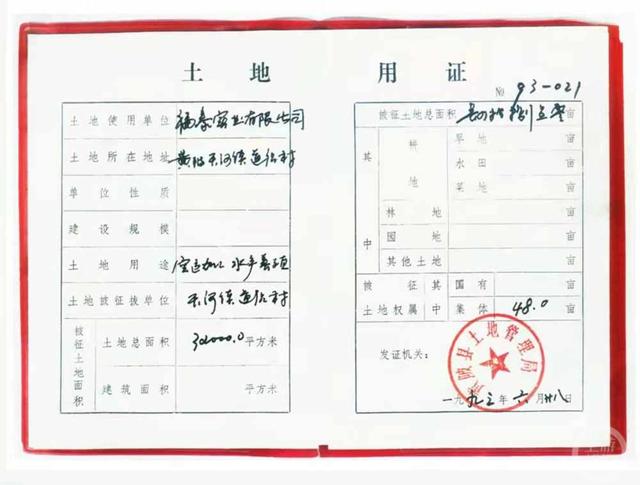 土地
用证
№ 93-021
土地使用单位 福泰实业有限公司
土地所在地址 黄陂天河镇道位村
单位性质
建设规模
土地用途 水产养殖
土地被征拨单位 天河镇道位村
被征土地面积
土地总面积 30000.0 平方米
建筑面积 平方米
被征土地总面积 亩
其中
耕地
旱地 亩
水田 亩
菜地 亩
林地 亩
园地 亩
其他土地 亩
被征土地权属
其中
国有 亩
集体 48.0 亩
发证机关：
黄陂县土地管理局
一九九三年六月廿八日